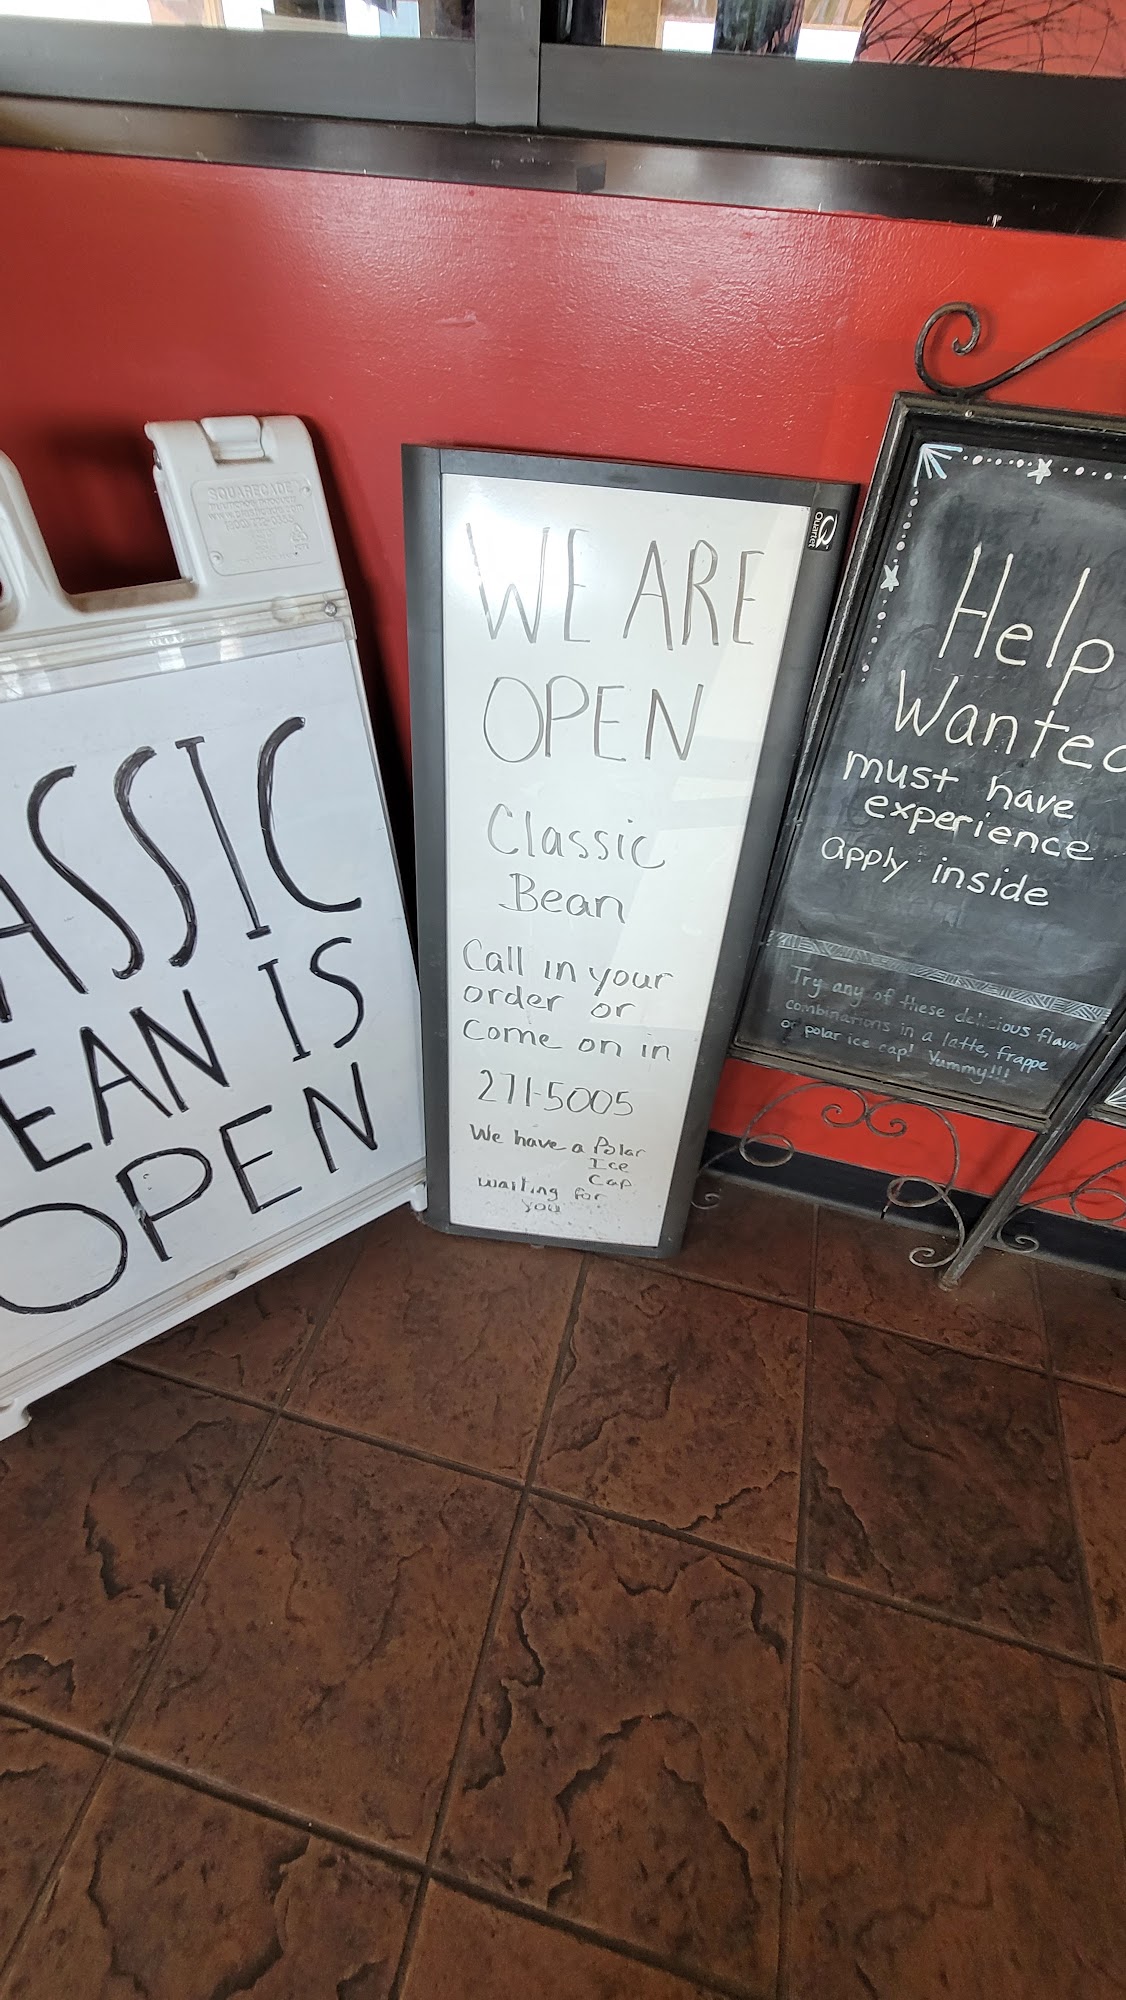 SQUARECADE
ASSIC
EAN IS
OPEN
WE ARE
OPEN
Classic
Bean
Call in your
order or
Come on in
271-5005
We have a Polar
Ice
Cap
waiting for
you
Quartet
Help
Wanted
must have
experience
apply inside
Try any of these delicious flavor
combinations in a latte, frappe
or polar ice cap! Yummy!!!